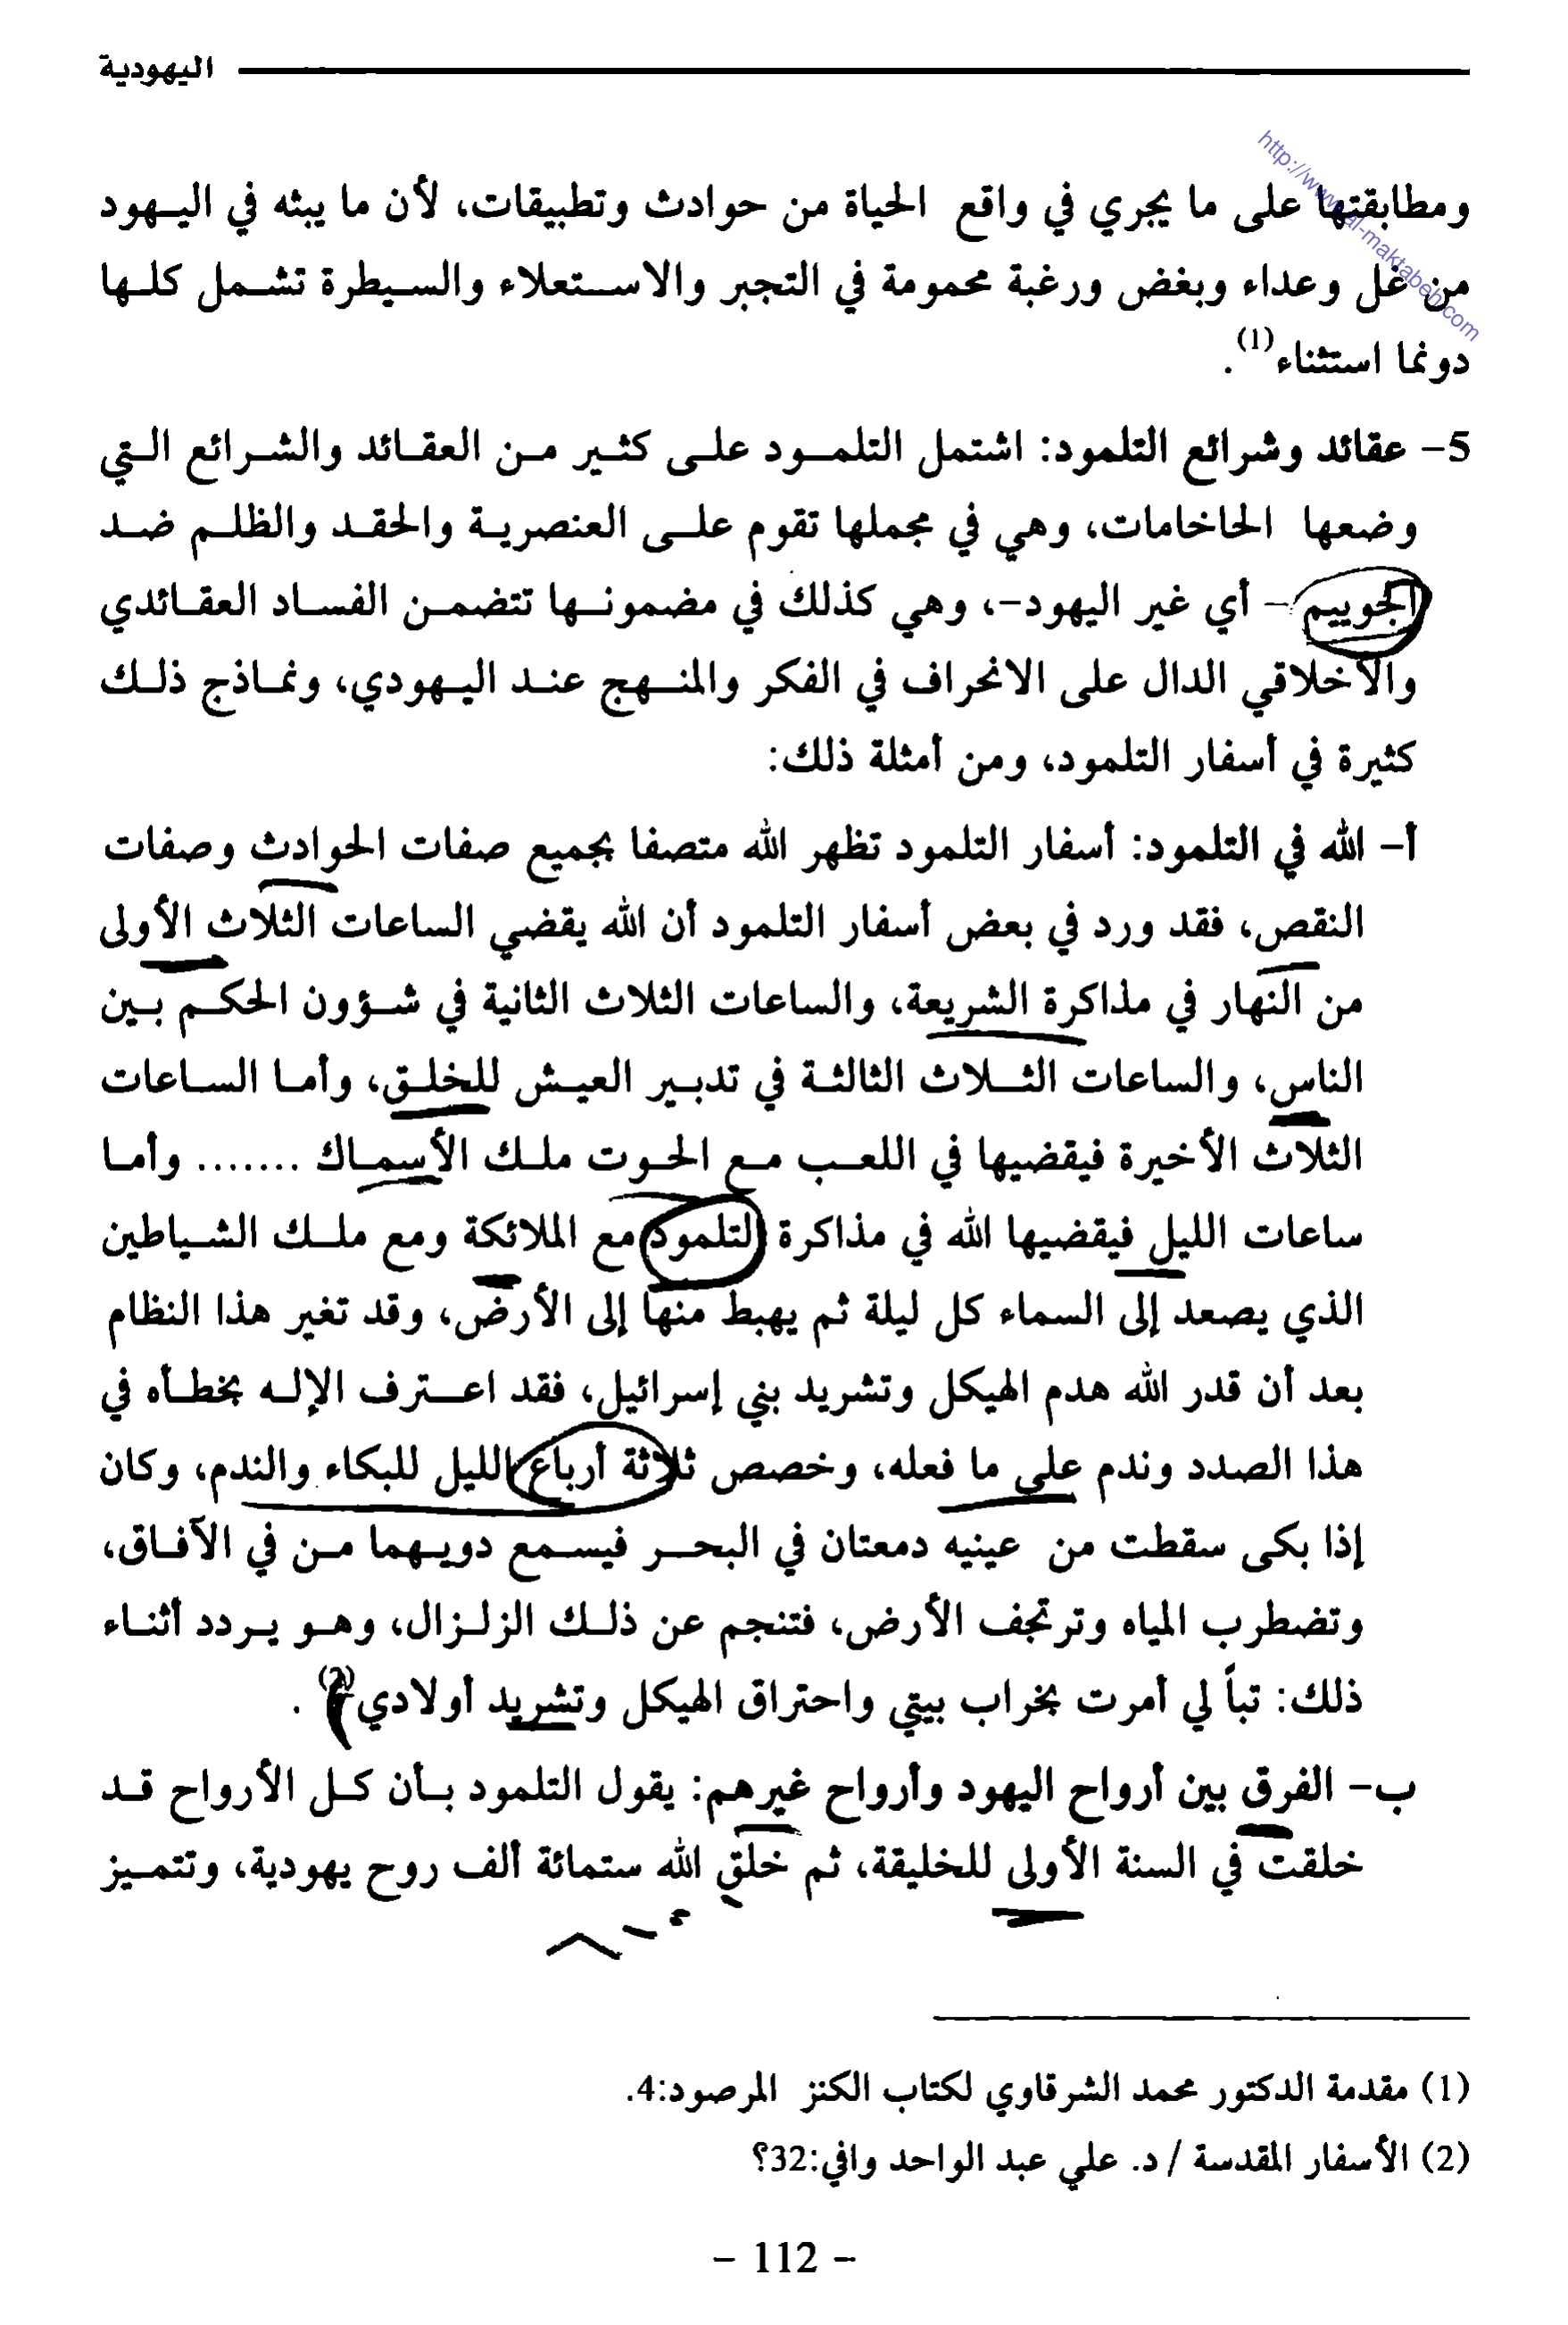 اليهودية
http://www.al-maktabeh.com
ومطابقتها على ما يجري في واقع الحياة من حوادث وتطبيقات، لأن ما يبثه في اليهود
من غل وعداء وبغض ورغبة محمومة في التجبر والاستعلاء والسيطرة تشمل كلها
دونما استثناء(1).
5- عقائد وشرائع التلمود: اشتمل التلمود على كثير من العقائد والشرائع التي
وضعها الحاخامات، وهي في مجملها تقوم على العنصرية والحقد والظلم ضد
الجوييم - أي غير اليهود-، وهي كذلك في مضمونها تتضمن الفساد العقائدي
والأخلاقي الدال على الانحراف في الفكر والمنهج عند اليهودي، ونماذج ذلك
كثيرة في أسفار التلمود، ومن أمثلة ذلك:
أ- الله في التلمود: أسفار التلمود تظهر الله متصفا بجميع صفات الحوادث وصفات
النقص، فقد ورد في بعض أسفار التلمود أن الله يقضي الساعات الثلاث الأولى
من النهار في مذاكرة الشريعة، والساعات الثلاث الثانية في شؤون الحكم بين
الناس، والساعات الثلاث الثالثة في تدبير العيش للخلق، وأما الساعات
الثلاث الأخيرة فيقضيها في اللعب مع الحوت ملك الأسماك ....... وأما
ساعات الليل فيقضيها الله في مذاكرة التلمود مع الملائكة ومع ملك الشياطين
الذي يصعد إلى السماء كل ليلة ثم يهبط منها إلى الأرض، وقد تغير هذا النظام
بعد أن قدر الله هدم الهيكل وتشريد بني إسرائيل، فقد اعترف الإله بخطأه في
هذا الصدد وندم على ما فعله، وخصص ثلاثة أرباع الليل للبكاء والندم، وكان
إذا بكى سقطت من عينيه دمعتان في البحر فيسمع دويهما من في الآفاق،
وتضطرب المياه وترتجف الأرض، فتنجم عن ذلك الزلزال، وهو يردد أثناء
ذلك: تباً لي أمرت بخراب بيتي واحتراق الهيكل وتشريد أولادي(2) .
ب- الفرق بين أرواح اليهود وأرواح غيرهم: يقول التلمود بأن كل الأرواح قد
خلقت في السنة الأولى للخليقة، ثم خلق الله ستمائة ألف روح يهودية، وتتميز
(1) مقدمة الدكتور محمد الشرقاوي لكتاب الكنز المرصود:4.
(2) الأسفار المقدسة / د. علي عبد الواحد وافي:32؟
- 112 -